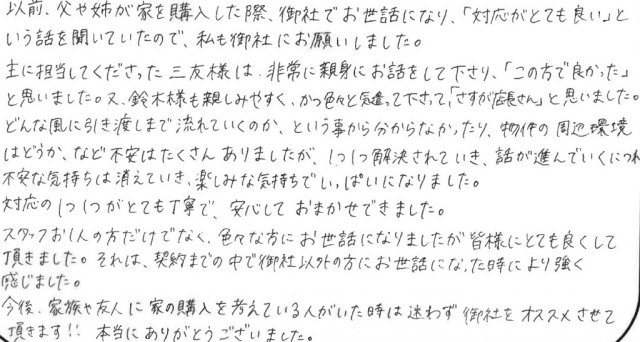 以前、父や姉が家を購入した際、御社でお世話になり、「対応がとても良い」と
いう話を聞いていたので、私も御社にお願いしました。
主に担当してくださった三友様は、非常に親身にお話をして下さり、「この方で良かった」
と思いました。又、鈴木様も親しみやすく、かつ色々と気遣って下さって「さすが店長さん」と思いました。
どんな風に引き渡しまで流れていくのか、という事から分からなかったり、物件の周辺環境
はどうか、など不安はたくさんありましたが、1つ1つ解決されていき、話が進んでいくにつれ
不安な気持ちは消えていき、楽しみな気持ちでいっぱいになりました。
対応の1つ1つがとても丁寧で、安心しておまかせできました。
スタッフお1人の方だけでなく、色々な方にお世話になりましたが皆様にとても良くして
頂きました。それは、契約までの中で御社以外の方にお世話になった時により強く
感じました。
今後、家族や友人に家の購入を考えている人がいた時は迷わず御社をオススメさせて
頂きます!! 本当にありがとうございました。